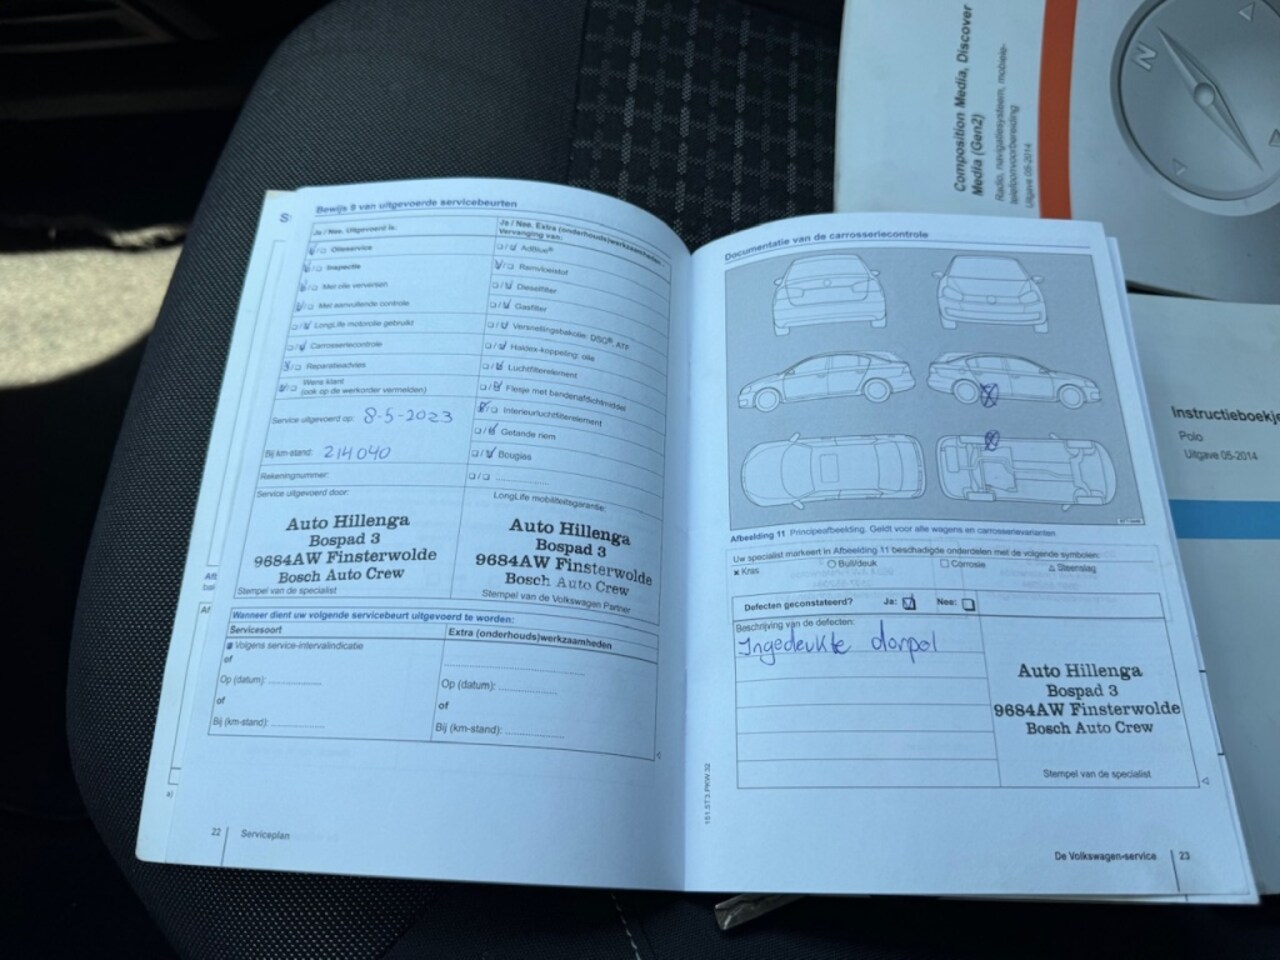 Bewijs 9 van uitgevoerde servicebeurten
Ja / Nee. Uitgevoerd is:
Olieservice
Inspectie
Met olie verversen
Met aanvullende controle
LongLife motorolie gebruikt
Carrosseriecontrole
Reparatieadvies
Wens klant
(ook op de werkorder vermelden)
Service uitgevoerd op: 8-5-2023
Bij km-stand: 214040
Rekeningnummer:
Service uitgevoerd door:
Auto Hillenga
Bospad 3
9684AW Finsterwolde
Bosch Auto Crew
Stempel van de specialist
Ja / Nee. Extra (onderhouds)werkzaamheden -
Vervanging van:
AdBlue®
Remvloeistof
Dieselfilter
Gasfilter
Versnellingsbakolie: DSG®, ATF
Haldex-koppeling: olie
Luchtfilterelement
Flesje met bandenafdichtmiddel
Interieurluchtfilterelement
Getande riem
Bougies
LongLife mobiliteitsgarantie:
Auto Hillenga
Bospad 3
9684AW Finsterwolde
Bosch Auto Crew
Stempel van de Volkswagen Partner
Wanneer dient uw volgende servicebeurt uitgevoerd te worden:
Servicesoort
Volgens service-intervalindicatie
of
Op (datum):
of
Bij (km-stand):
Extra (onderhouds)werkzaamheden
Op (datum):
of
Bij (km-stand):
22
Serviceplan
Documentatie van de carrosseriecontrole
Afbeelding 11 Principeafbeelding. Geldt voor alle wagens en carrosserievarianten
Uw specialist markeert in Afbeelding 11 beschadigde onderdelen met de volgende symbolen:
× Kras
Buil/deuk
Corrosie
Steenslag
Defecten geconstateerd? Ja: Nee:
Beschrijving van de defecten:
Ingedeukte dorpel
Auto Hillenga
Bospad 3
9684AW Finsterwolde
Bosch Auto Crew
Stempel van de specialist
151.5T3.PKW.32
De Volkswagen-service
23
Composition Media, Discover
Media (Gen2)
Radio, navigatiesysteem, mobiele-
telefoonvoorbereiding
Uitgave 05-2014
N
Instructieboekj
Polo
Uitgave 05-2014